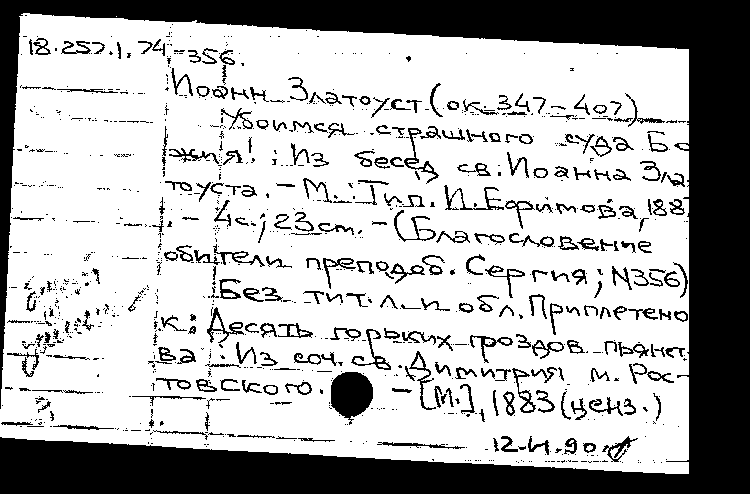 18.257.1.74-356.
Иоанн Златоуст (ок. 347-407)
Убоимся страшного суда Бо
жия! ; Из бесед св. Иоанна Зла-
тоуста. - М. : Тип. И. Ефимова, 188
. - 4с.; 23 см. - (Благословение
обители преподоб. Сергия; N356)
Без тит. л. и обл. Приплетено
к: Десять горьких гроздов пьянст
ва : Из соч. св. Димитрия м. Рос-
товского. - [М.], 1883 (ценз.)